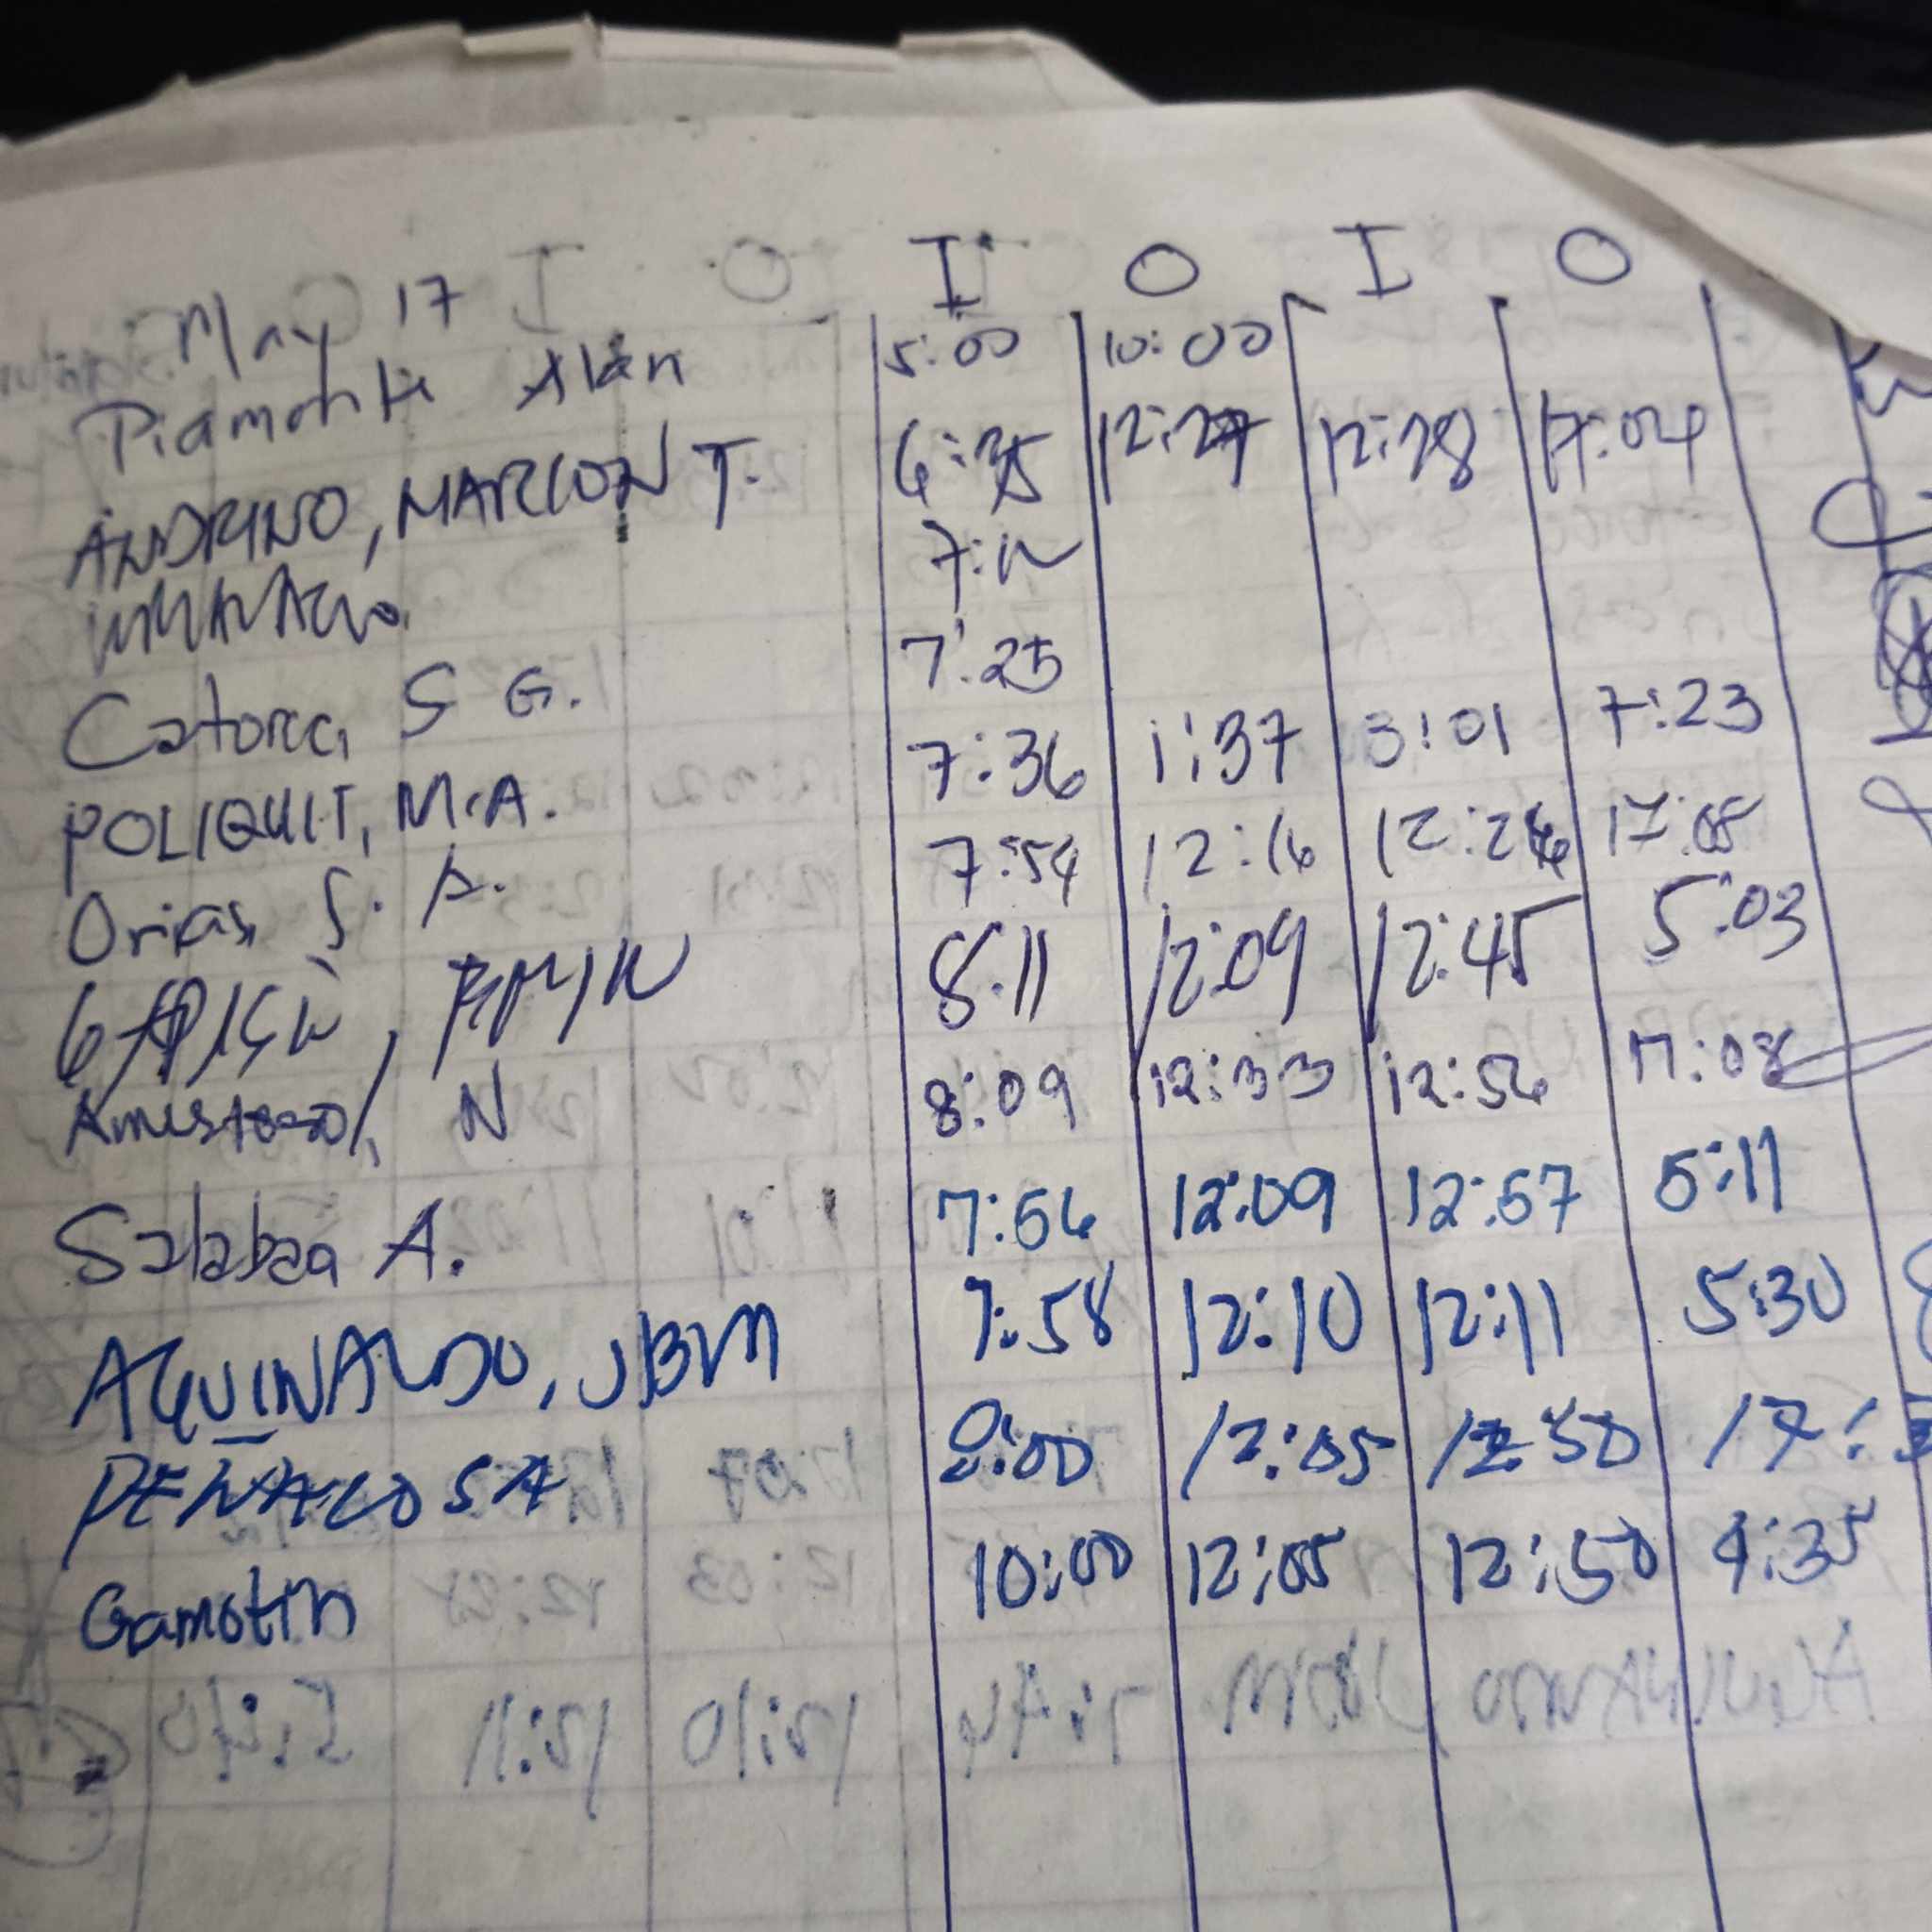 May 17 I O I O
Piamonte Alan 5:00 10:00
ANDRINO, MARLON T. 6:35 12:27 12:28 17:04
7:12
Catorce, S G. 7:25
POLIQUIT, M.A. 7:36 1:37 3:01 7:23
Orias, S. A. 7:54 12:16 12:26 17:08
8:11 12:09 12:45 5:03
Amestoso, N 8:09 12:33 12:56 17:08
Salabao A. 7:56 12:09 12:57 5:11
AGUINALDO, JBM 7:58 12:10 12:11 5:30
PEÑALOSA 8:00 12:05 12:50 17:
Gamotin 10:00 12:05 12:50 4:35